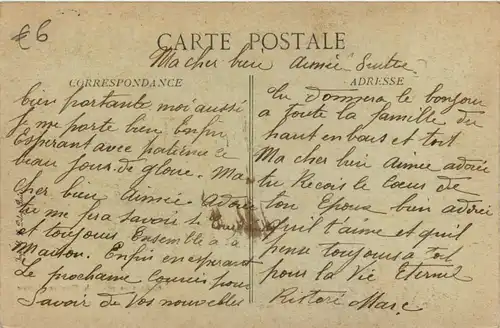 £6
CARTE POSTALE
Ma cher bien aimée Suite
CORRESPONDANCE
bien portante moi aussi
je me porte bien Enfin
Esperant avec patience le
beau jour de gloire. Ma
cher bien aimée adorée
tu me fra savoir si
et toujours Ensemble a la
Maison. Enfin en esperant
Le prochame Courié pour
Savoir de Vos nouvelles
ADRESSE
Tu donnera le bonjour
a toute la famille du
haut en bas et toit
Ma cher bien aimée adorée
tu Recois le Coeus de
ton Epous bien adoré
qu'il t'aime et qu'il
pense toujours a toi
pour la Vie Eternel
Ristori Marc